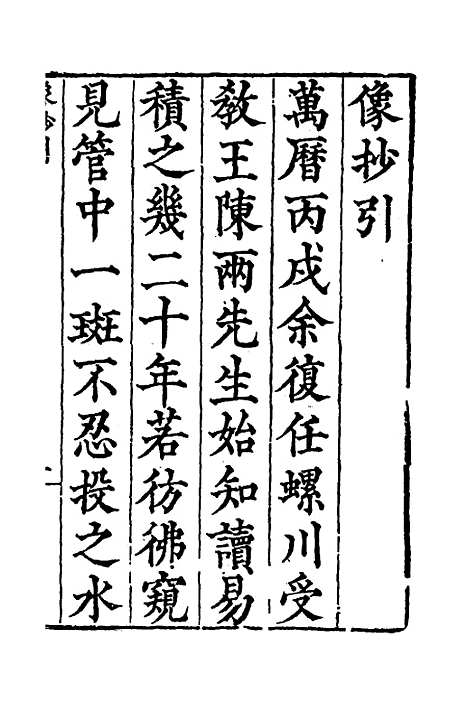 像抄引
萬曆丙戌余復任螺川受
教王陳兩先生始知讀易
積之幾二十年若彷彿窺
見管中一斑不忍投之水